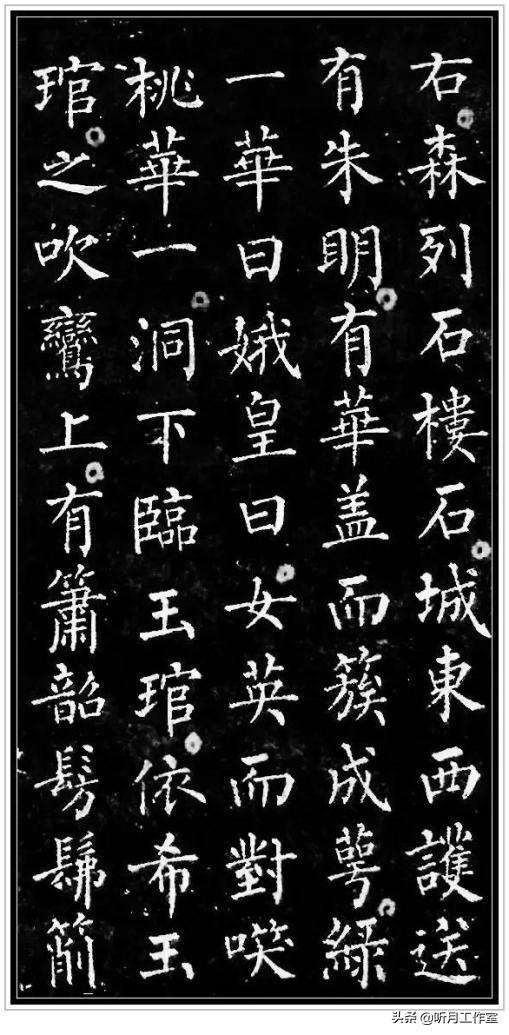 右森列石樓石城東西護送
有朱明有華盖而簇成萼綠
一華曰娥皇曰女英而對喫
桃華一洞下臨玉琯依希玉
琯之吹鸞上有簫韶髣髴箾
头条 @听月工作室